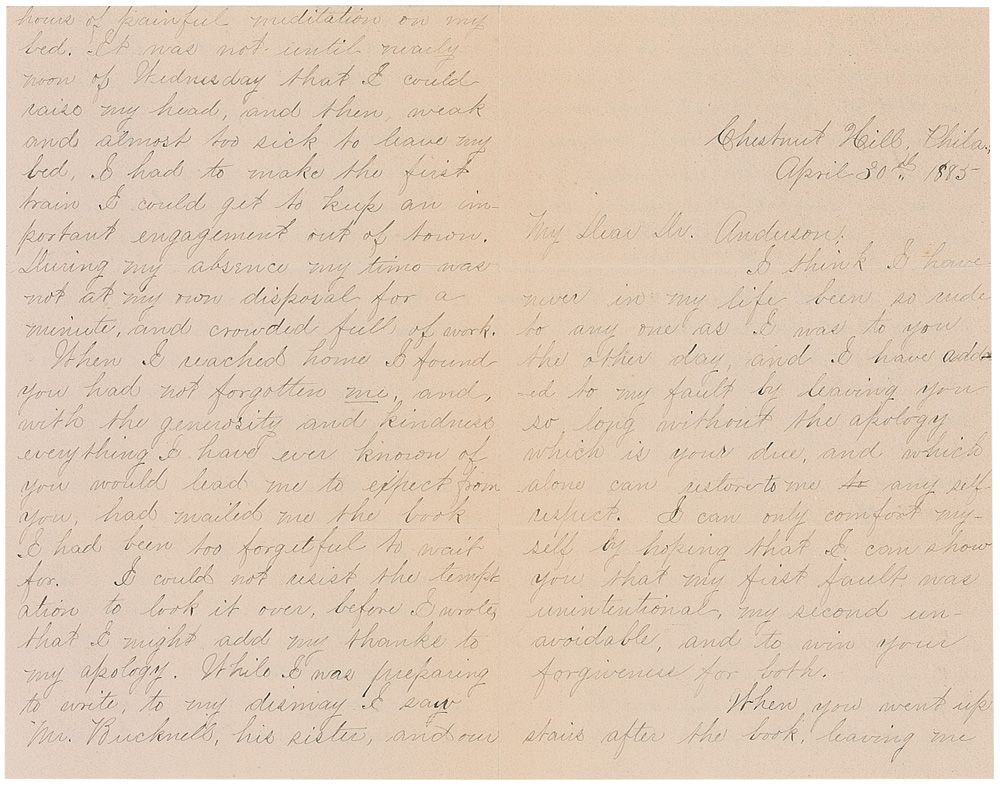 hours of painful meditation on my
bed. It was not until nearly
noon of Wednesday that I could
raise my head, and then, weak
and almost too sick to leave my
bed, I had to make the first
train I could get to keep an im-
portant engagement out of town.
During my absence my time was
not at my own disposal for a
minute, and crowded full of work.
When I reached home I found
you had not forgotten me, and,
with the generosity and kindness
everything I have ever known of
you would lead me to expect from
you, had mailed me the book
I had been too forgetful to wait
for. I could not resist the tempt
ation to look it over, before I wrote,
that I might add my thanks to
my apology. While I was preparing
to write, to my dismay I saw
Mr. Bucknell, his sister, and our
Chestnut Hill, Phila.,
April 30th. 1885
My Dear Dr. Anderson,
I think I have
never in my life been so rude
to any one as I was to you
the other day, and I have add-
-ed to my fault by leaving you
so long without the apology
which is your due, and which
alone can restore to me to any self
respect. I can only comfort my-
self by hoping that I can show
you that my first fault was
unintentional, my second un-
avoidable, and to win your
forgiveness for both.
When you went up
stairs after the book, leaving me